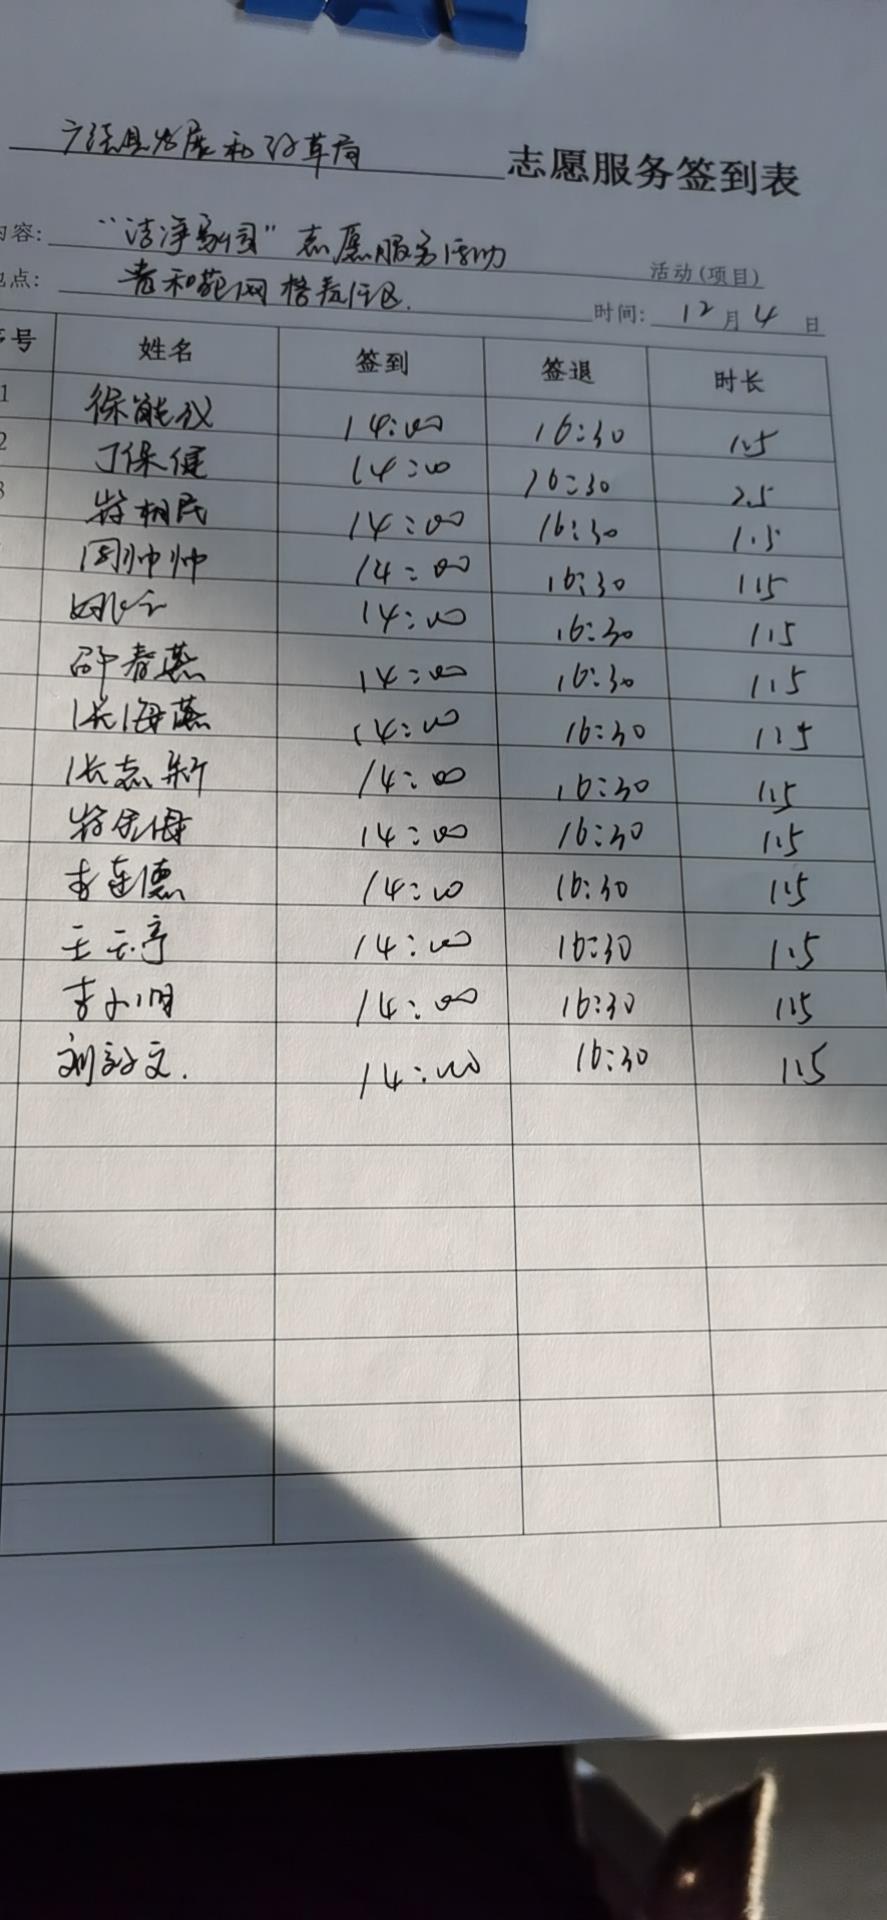 发展和改革局 志愿服务签到表
内容: "洁净家园"志愿服务活动 活动(项目)
地点: 青和苑网格责任区. 时间: 12月4日
序号 姓名 签到 签退 时长
1 徐能仪 14:00 16:30 1.5
2 丁保健 14:00 16:30 2.5
3 相民 14:00 16:30 1.5
周帅帅 14:00 16:30 1.5
14:00 16:30 1.5
邵春燕 14:00 16:30 1.5
张海燕 14:00 16:30 1.5
张志新 14:00 16:30 1.5
14:00 16:30 1.5
李连德 14:00 16:30 1.5
王天亭 14:00 16:30 1.5
李 14:00 16:30 1.5
刘文. 14:00 16:30 1.5